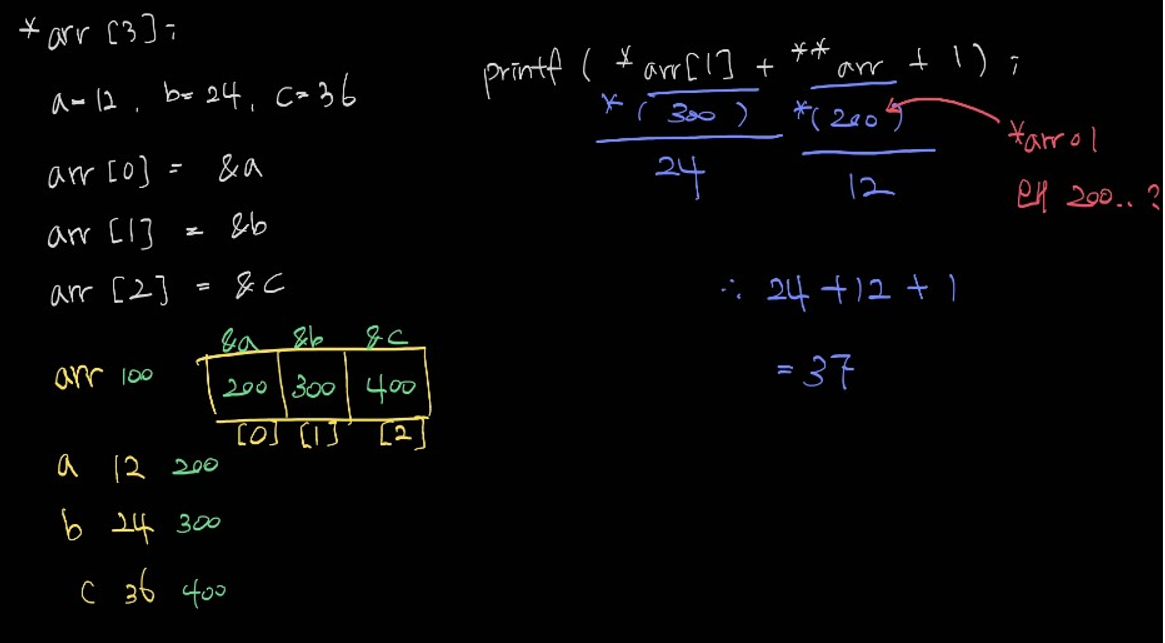 *arr [3];
a=12, b=24, c=36
arr [0] = &a
arr [1] = &b
arr [2] = &c
&a &b &c
arr 100 200 300 400
[0] [1] [2]
a 12 200
b 24 300
c 36 400
printf ( *arr[1] + **arr + 1 ) ;
*( 300 ) *(200)
24 12
*arr이
왜 200..?
∴ 24+12+1
= 37